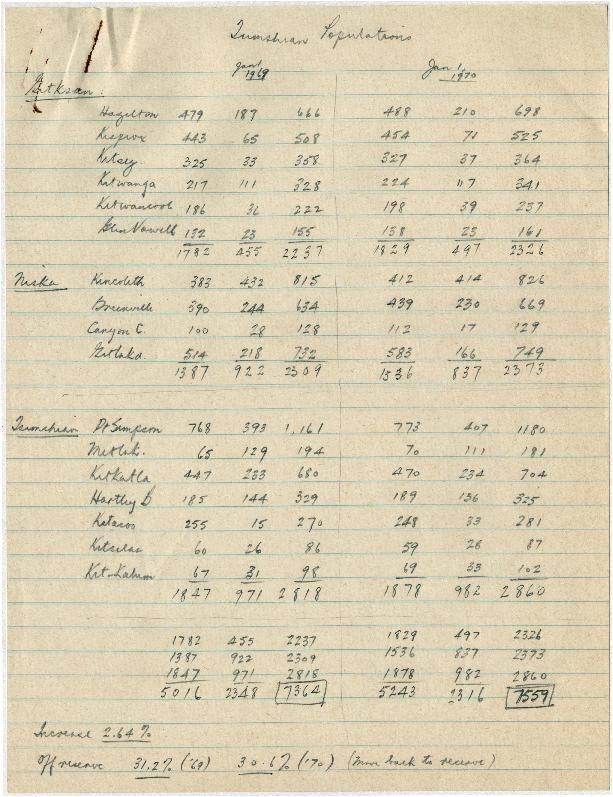 Tsimshian Populations
Jan 1 1969 Jan 1, 1970
Gitksan:
Hazelton 479 187 666 488 210 698
Kispiox 443 65 508 454 71 525
Kitseg. 325 33 358 327 37 364
Kitwanga 217 111 328 224 117 341
Kitwancool 186 36 222 198 39 237
Glen Vowell 132 23 155 138 23 161
1782 455 2237 1829 497 2326
Niska Kincolith 383 432 815 412 414 826
Greenville 390 244 634 439 230 669
Canyon C. 100 28 128 112 17 129
Gitlakd. 514 218 732 583 166 749
1387 922 2309 1536 837 2373
Tsimshian Pt Simpson 768 393 1,161 773 407 1180
Metlak. 65 129 194 70 111 181
Kitkatla 447 233 680 470 234 704
Hartley B 185 144 329 189 136 325
Kitasoo 255 15 270 248 33 281
Kitselas 60 26 86 59 28 87
Kit-Kalum 67 31 98 69 33 102
1847 971 2818 1878 982 2860
1782 455 2237 1829 497 2326
1387 922 2309 1536 837 2373
1847 971 2818 1878 982 2860
5016 2348 7364 5243 2316 7559
Increase 2.64%
Off reserve 31.2% ('69) 30.6% ('70) (Move back to reserve)